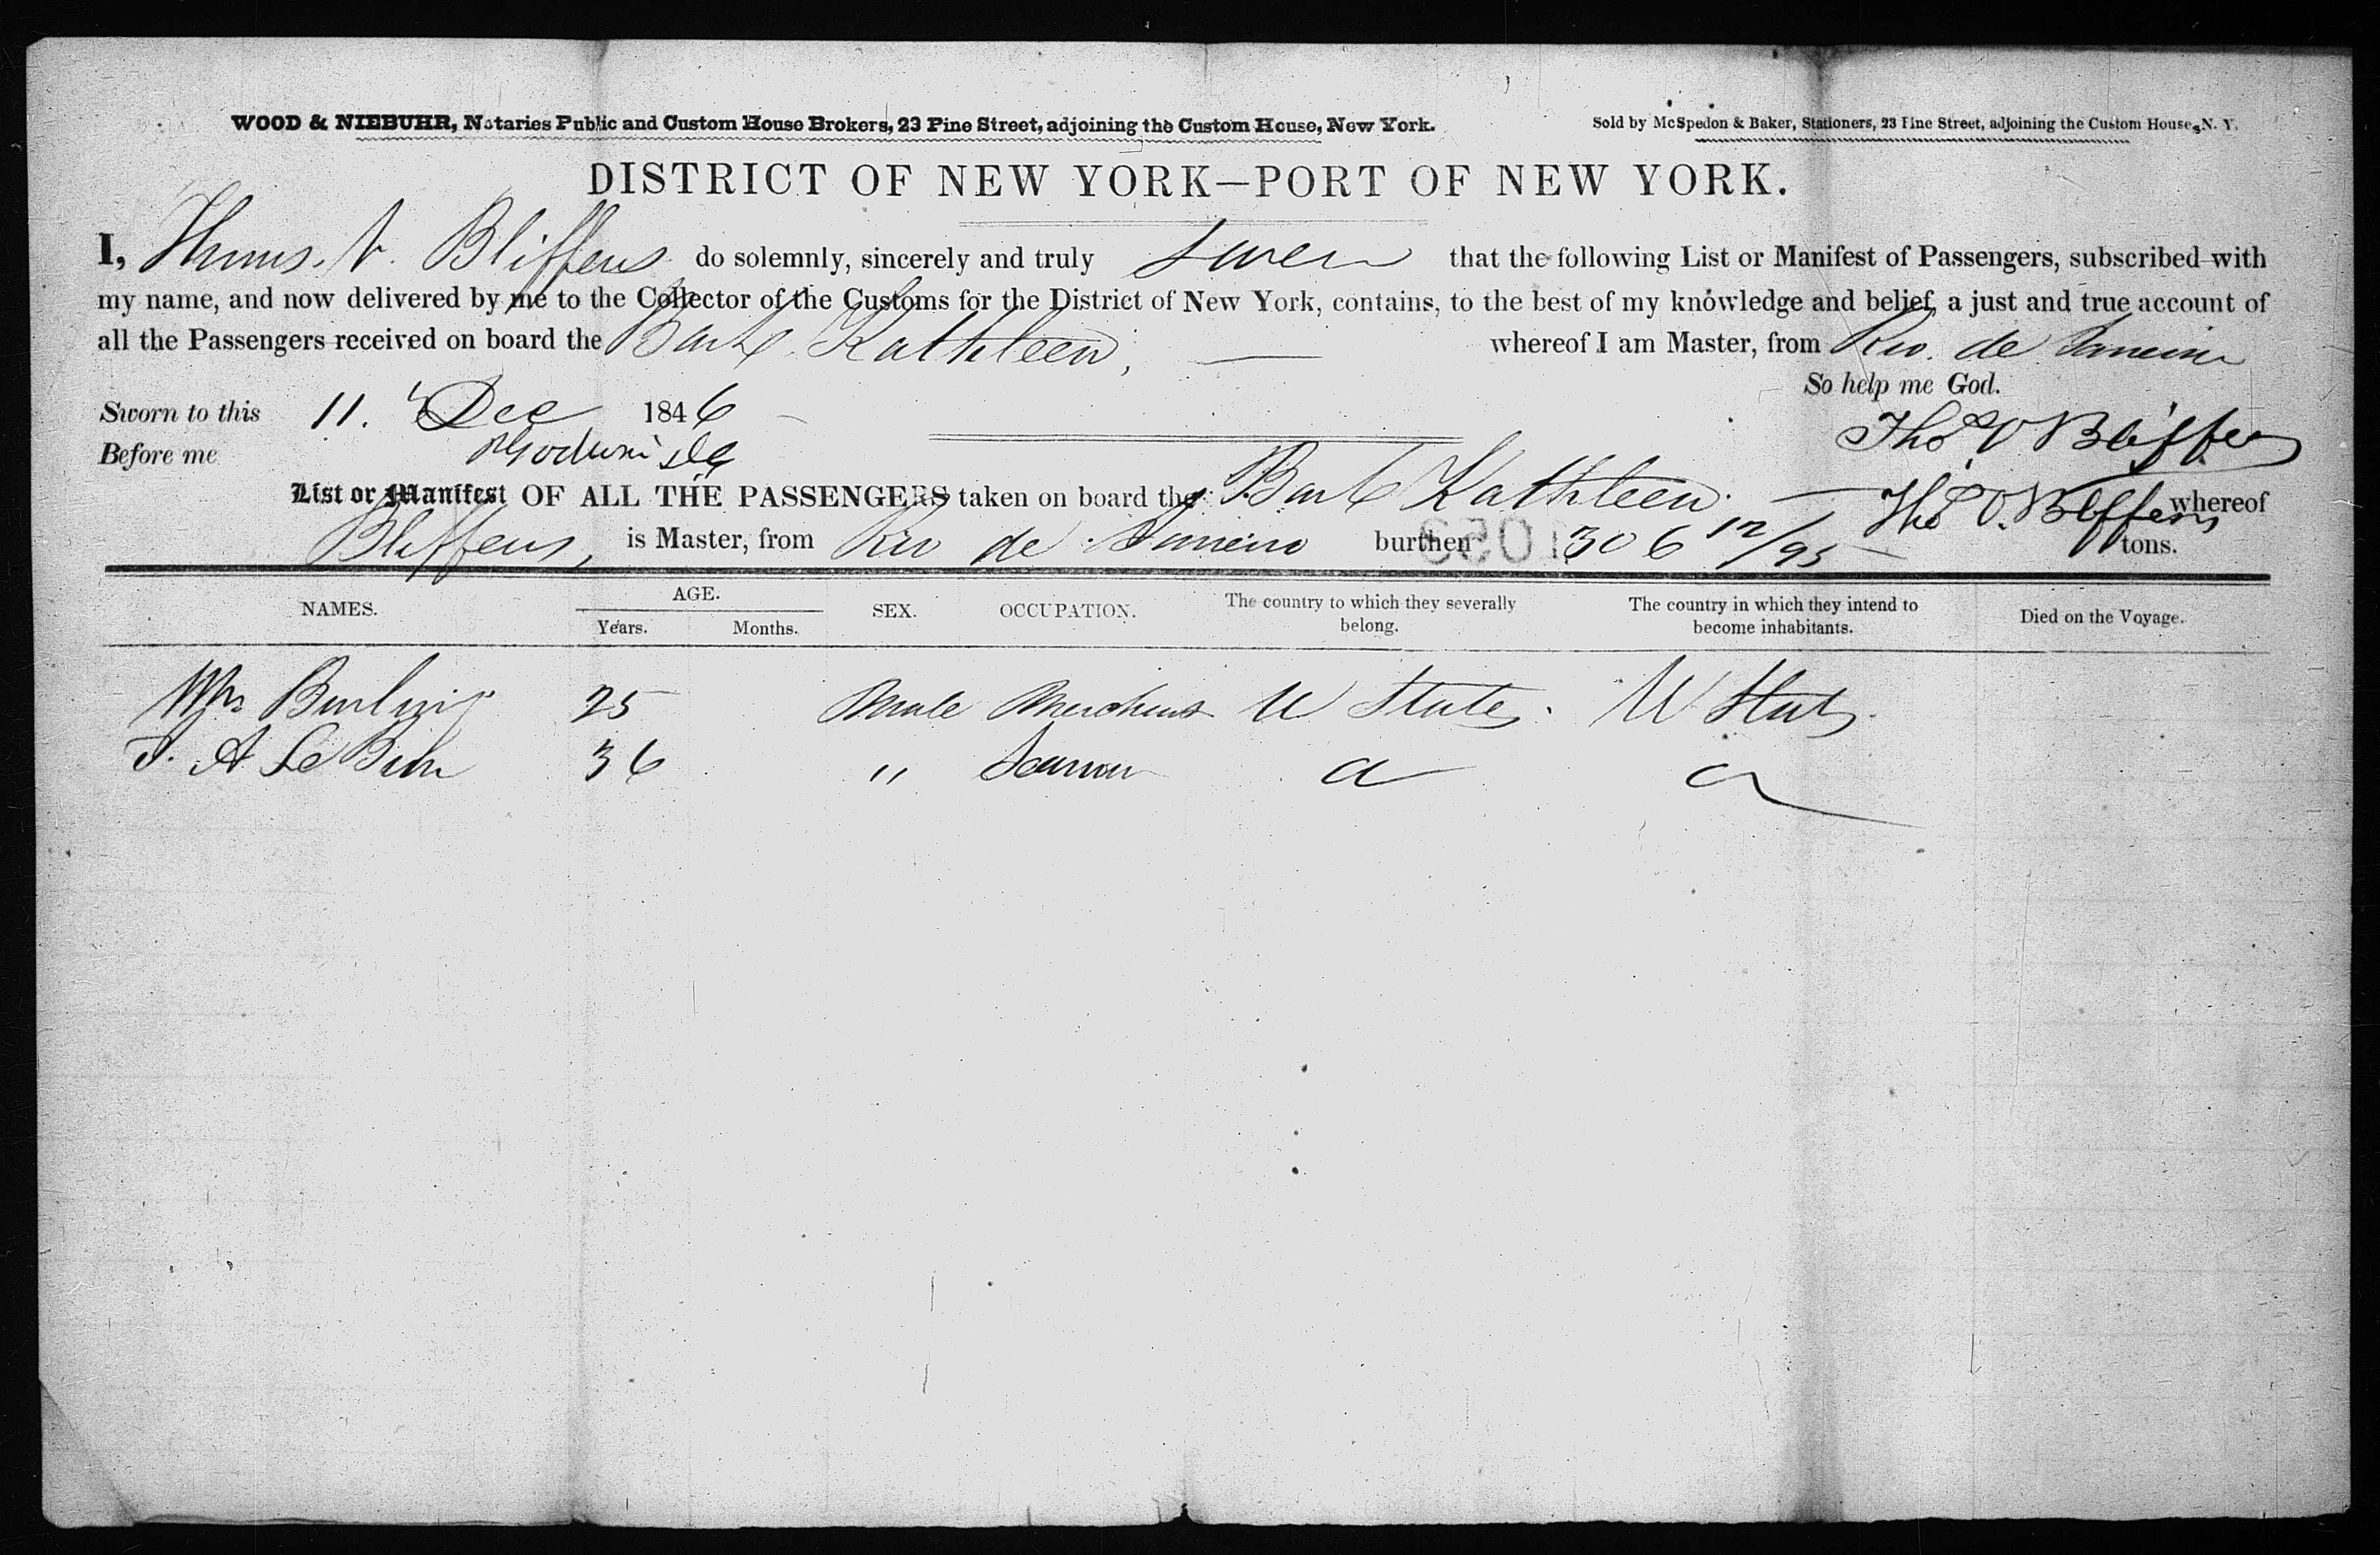 WOOD & NIEBUHR, Notaries Public and Custom House Brokers, 23 Pine Street, adjoining the Custom House, New York.
Sold by McSpedon & Baker, Stationers, 23 Pine Street, adjoining the Custom House, N. Y.
DISTRICT OF NEW YORK—PORT OF NEW YORK.
I, V. Bliffens do solemnly, sincerely and truly that the following List or Manifest of Passengers, subscribed with
my name, and now delivered by me to the Collector of the Customs for the District of New York, contains, to the best of my knowledge and belief, a just and true account of
all the Passengers received on board the Bark Kathleen, whereof I am Master, from Rio de Janeiro
So help me God.
Sworn to this 11. Dec 1846
Thos V Bliffens
Before me
List or Manifest OF ALL THE PASSENGERS taken on board the Bark Kathleen. Thos V. Bliffens whereof
Bliffens, is Master, from Rio de Janeiro burthen 306 12/95 tons.
NAMES. AGE. SEX. OCCUPATION. The country to which they severally belong. The country in which they intend to become inhabitants. Died on the Voyage.
Years. Months.
Wm 25 Male Merchant U States. U States.
J. A Le 36 " Seaman a a